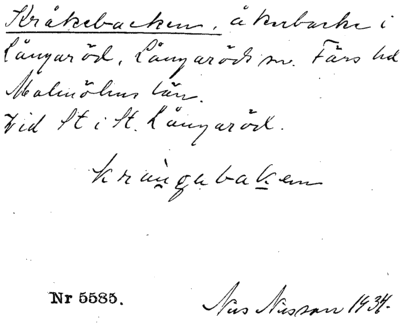 Kråkebacken, åkerbacke i
Långaröd, Långaröds sn. Färs hd
Malmöhus län.
Vid St i St. Långaröd.
krangabaken
Nr 5585.
Nils Nilsson 1934.